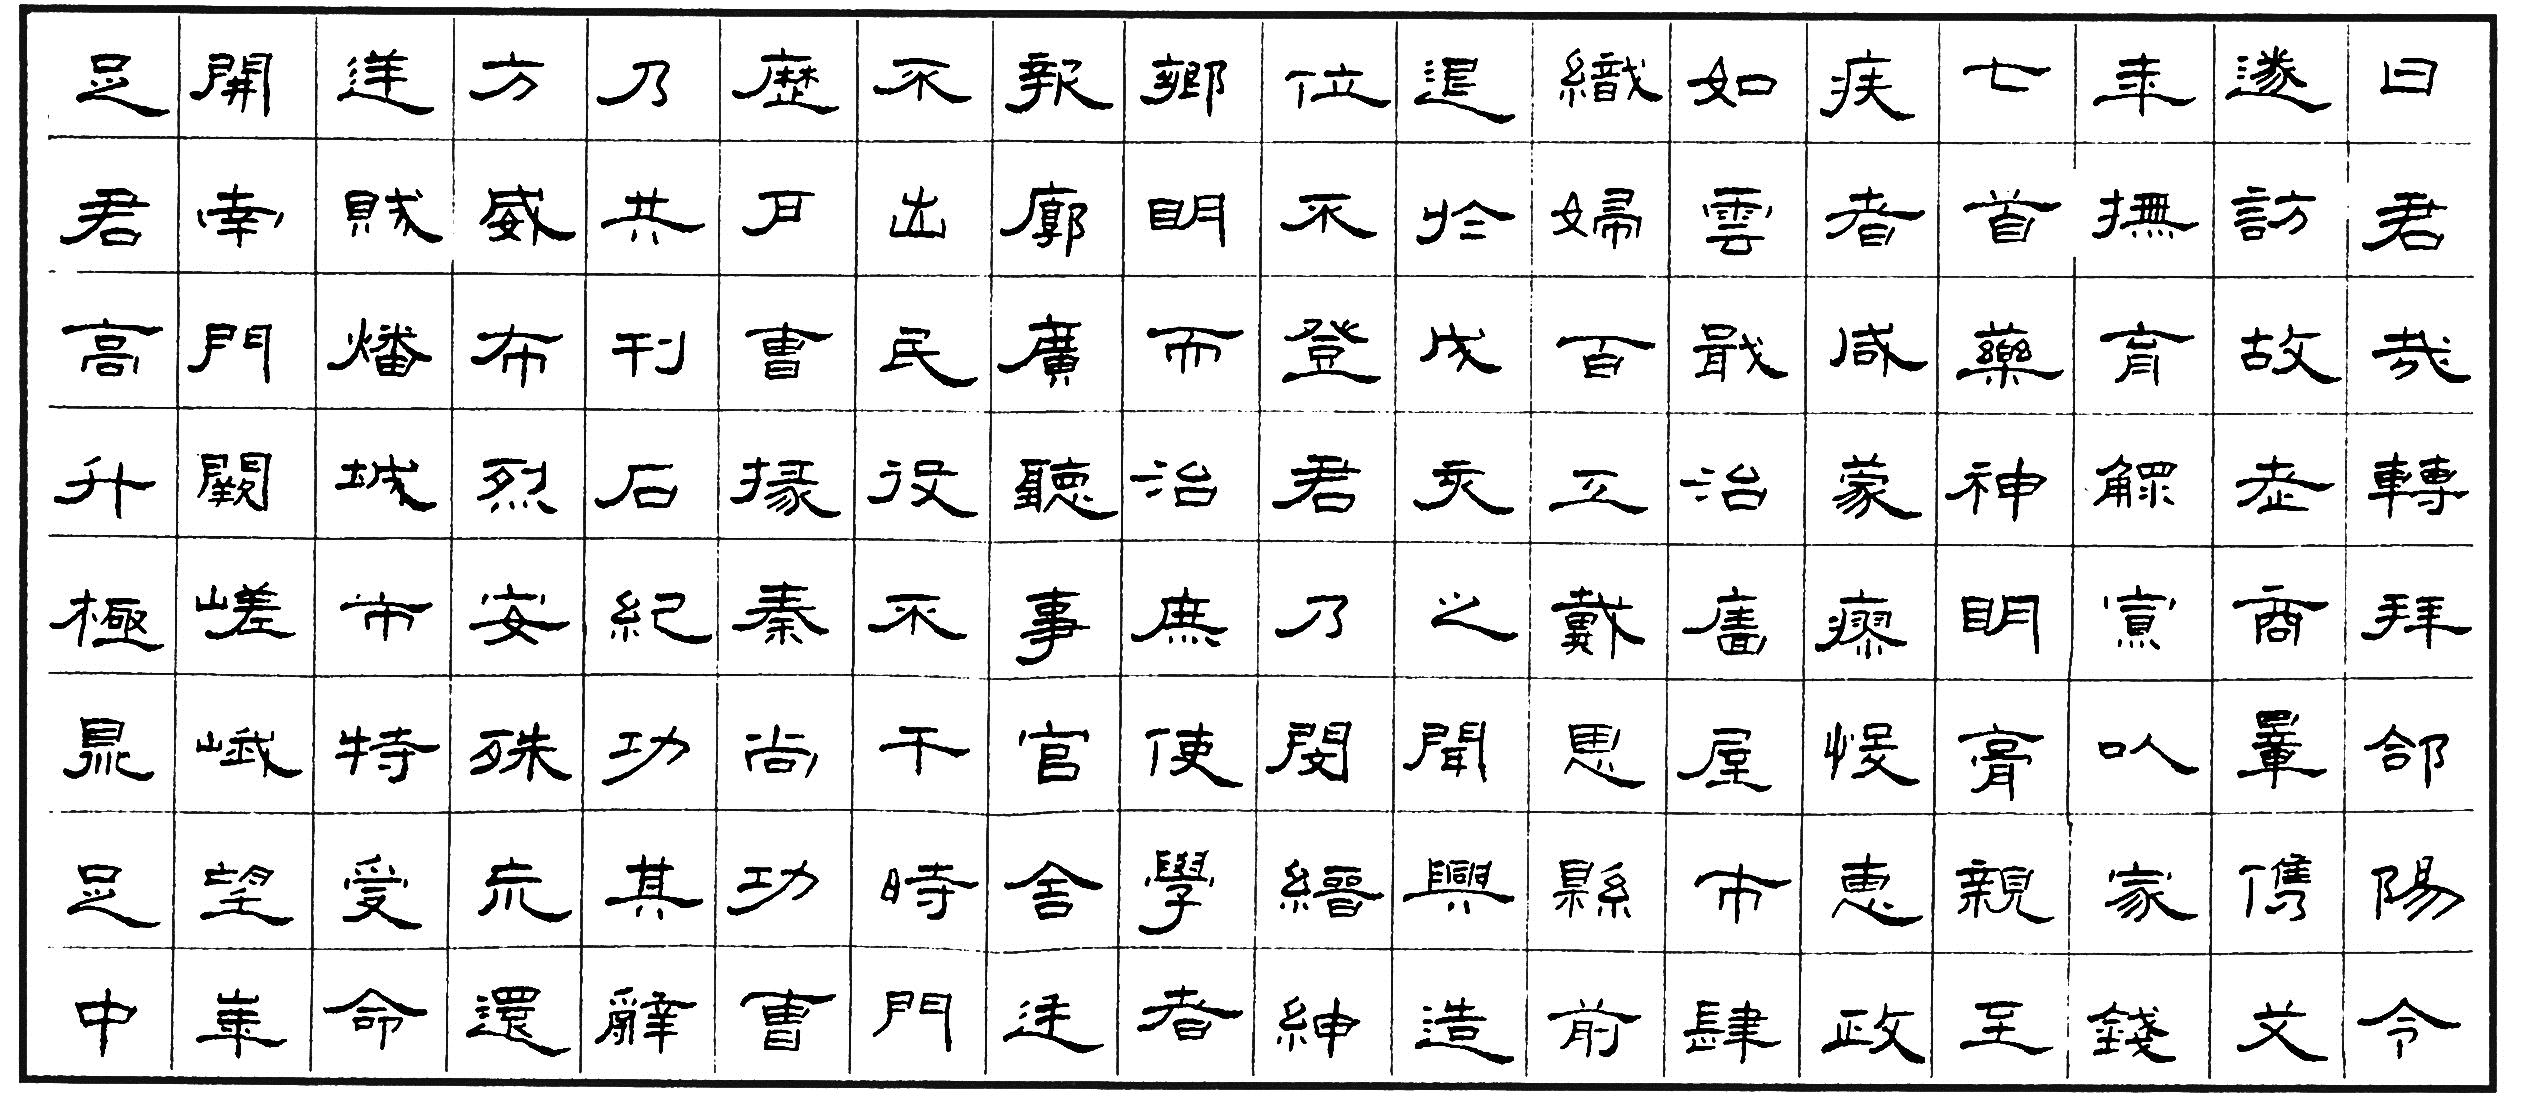 曰君哉轉拜郃陽令
遂訪故老商量儁艾
年撫育鰥寡以家錢
七首藥神明膏親至
疾者咸蒙瘳悛惠政
如雲戢治廧屋市肆
織婦百工戴恩縣前
追於戌亥之間興造
位不登君乃閔縉紳
鄉明而治庶使學者
報廓廣聽事官舍廷
不出民役不干時門
歷戶曹掾秦尚功曹
乃共刊石紀功其辭
方威布烈安殊巟還
逆賊燔城市特受命
開幸門闕嵯峨望華
足君高升極鼎足中